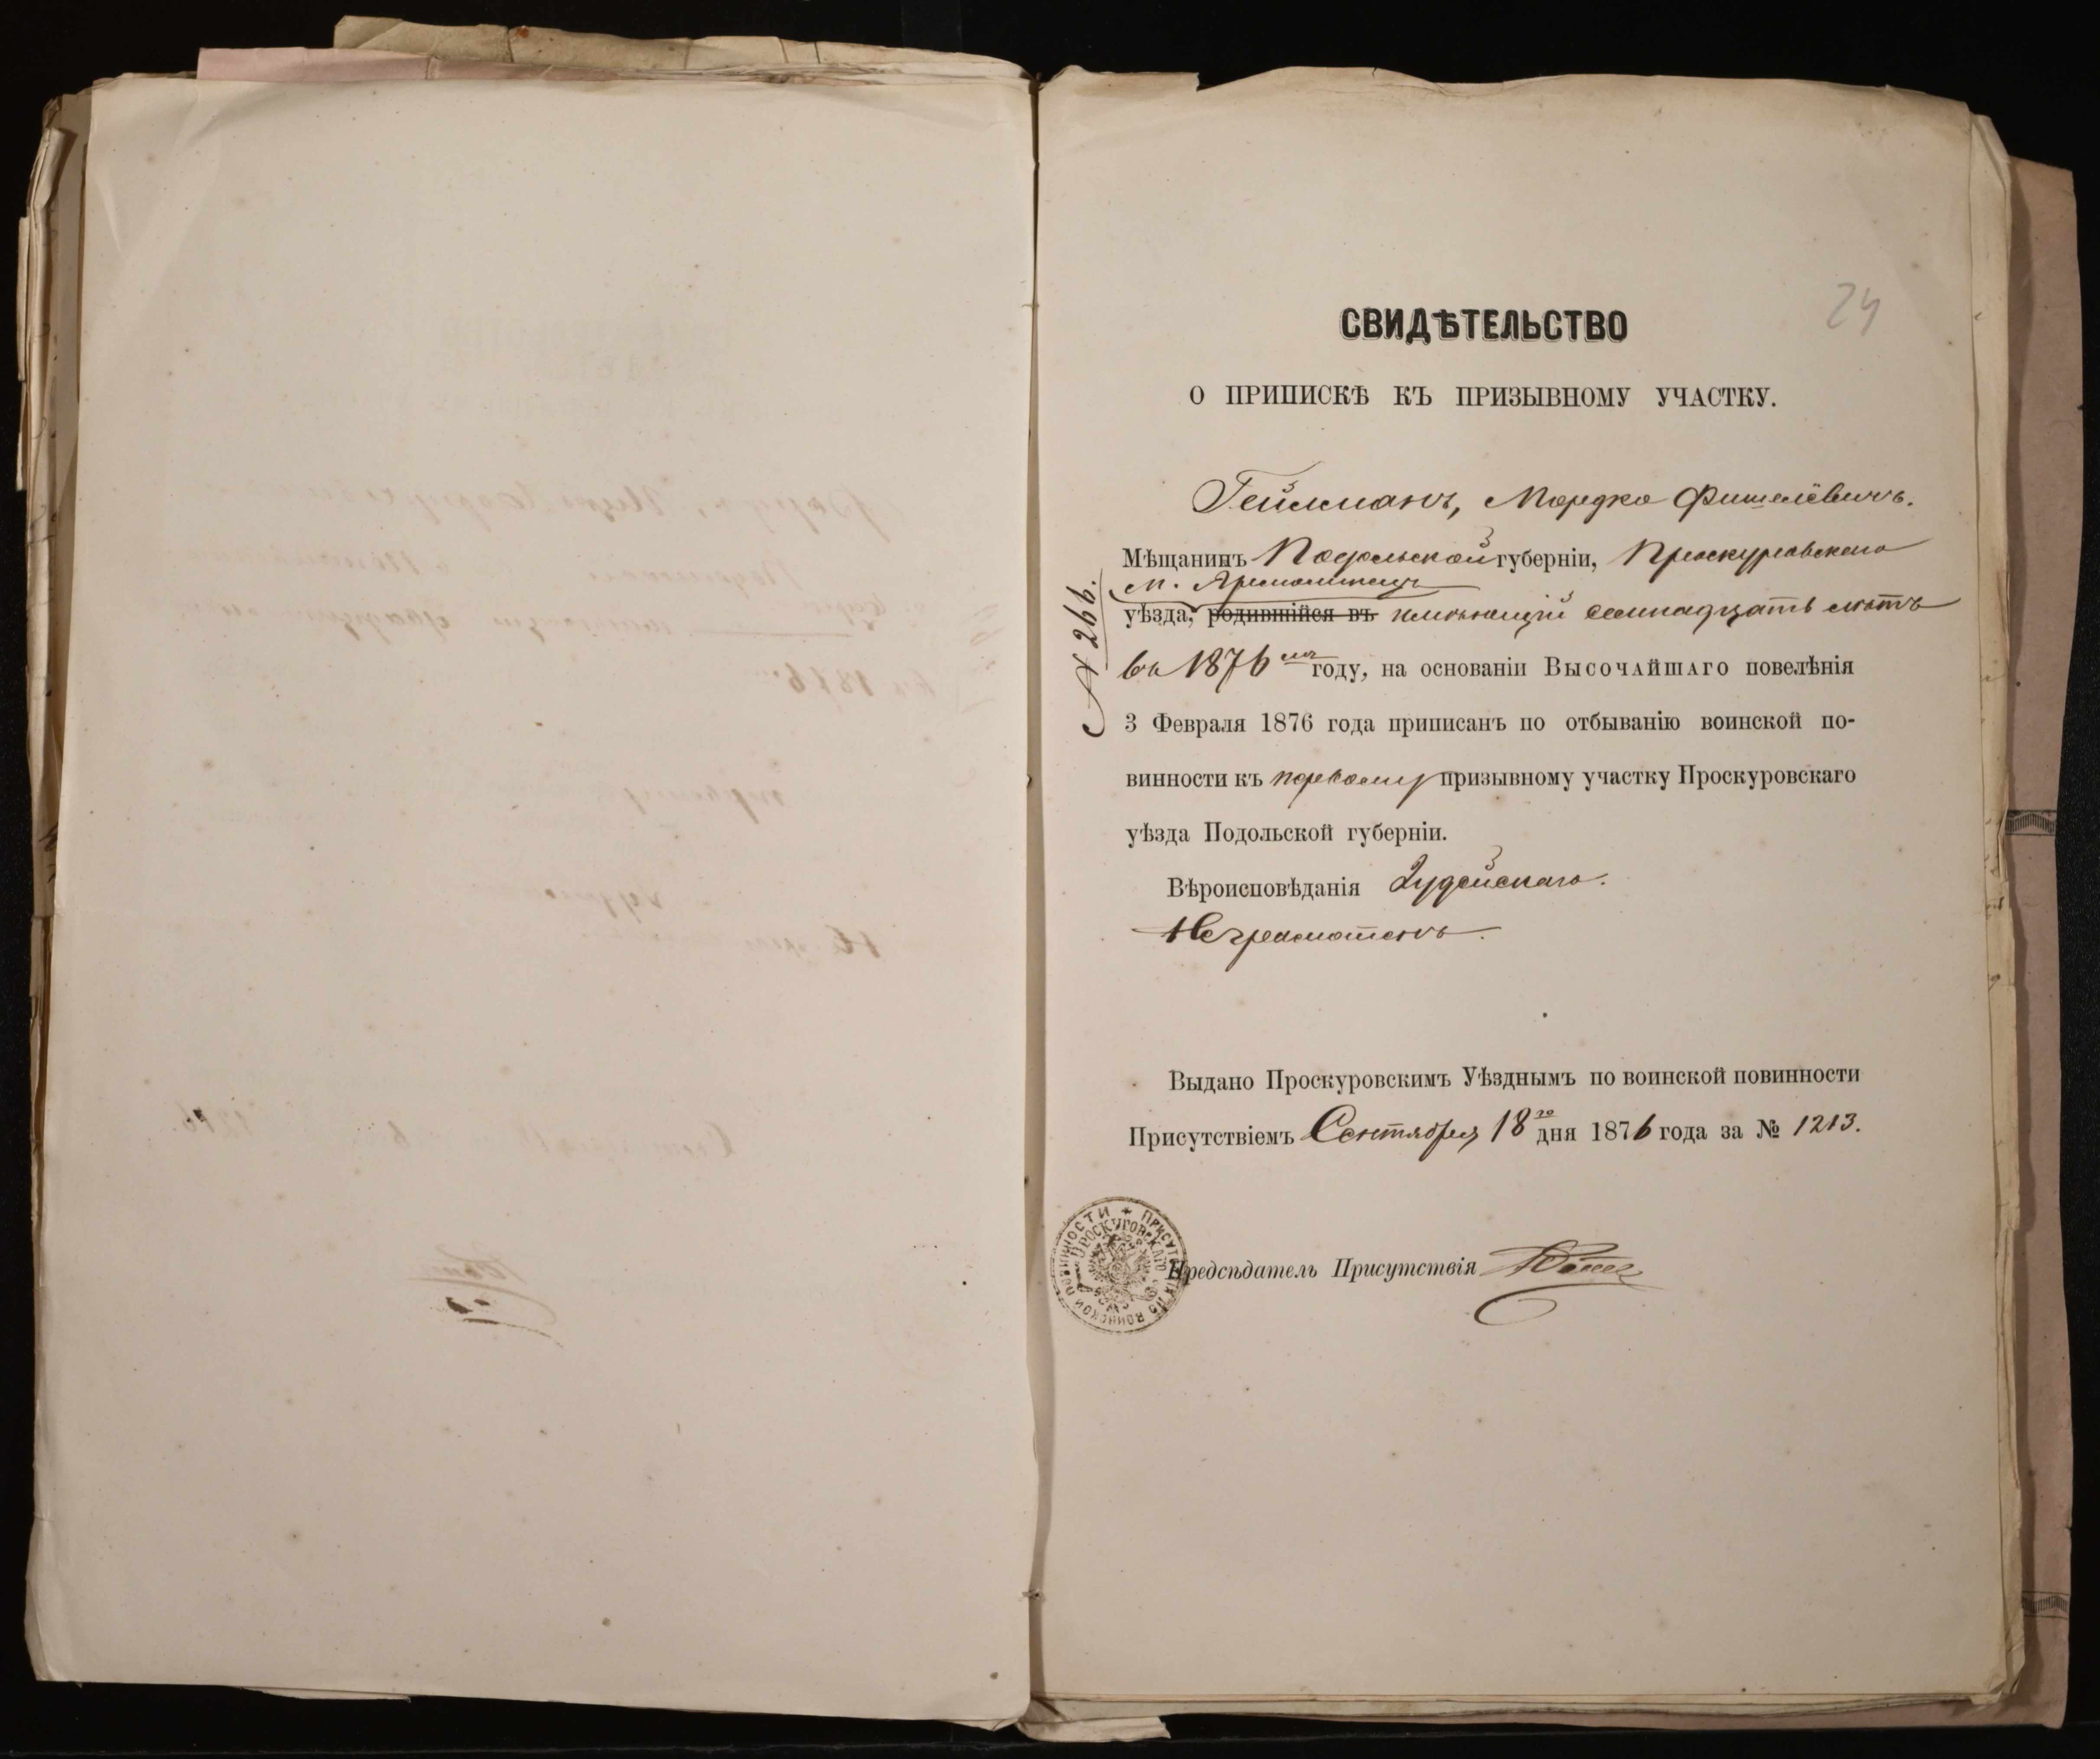 24
СВИДѢТЕЛЬСТВО
О ПРИПИСКѢ КЪ ПРИЗЫВНОМУ УЧАСТКУ.
Гейлманъ, Мордко Фишелёвичъ.
Мѣщанинъ Подольской губерніи, Проскуровскаго
м. Ярмолинецъ
уѣзда, родившійся въ имѣющій семнадцать лѣтъ
№ 266.
въ 1876 мъ году, на основаніи Высочайшаго повелѣнія
3 Февраля 1876 года приписанъ по отбыванію воинской по-
винности къ первому призывному участку Проскуровскаго
уѣзда Подольской губерніи.
Вѣроисповѣданія Іудейскаго.
Неграмотенъ.
Выдано Проскуровскимъ Уѣзднымъ по воинской повинности
Присутствіемъ Сентября 18 го дня 1876 года за № 1213.
Предсѣдатель Присутствія
ПРИСУТСТВІЯ ПО ВОИНСКОЙ ПОВИННОСТИ
ПРОСКУРОВСКАГО